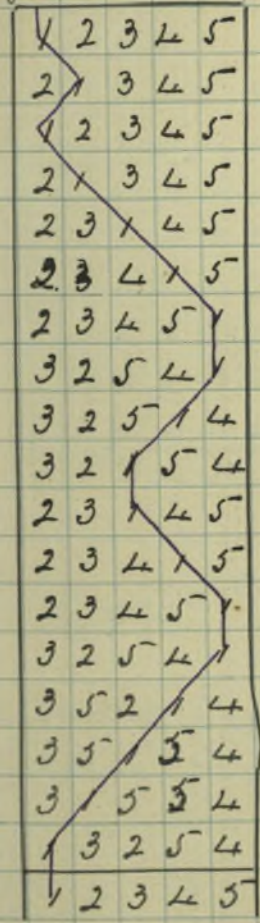 1 2 3 4 5
2 1 3 4 5
1 2 3 4 5
2 1 3 4 5
2 3 1 4 5
2 3 4 1 5
2 3 4 5 1
3 2 5 4 1
3 2 5 1 4
3 2 1 5 4
2 3 1 4 5
2 3 4 1 5
2 3 4 5 1
3 2 5 4 1
3 5 2 1 4
3 5 1 5 4
3 1 5 5 4
1 3 2 5 4
1 2 3 4 5